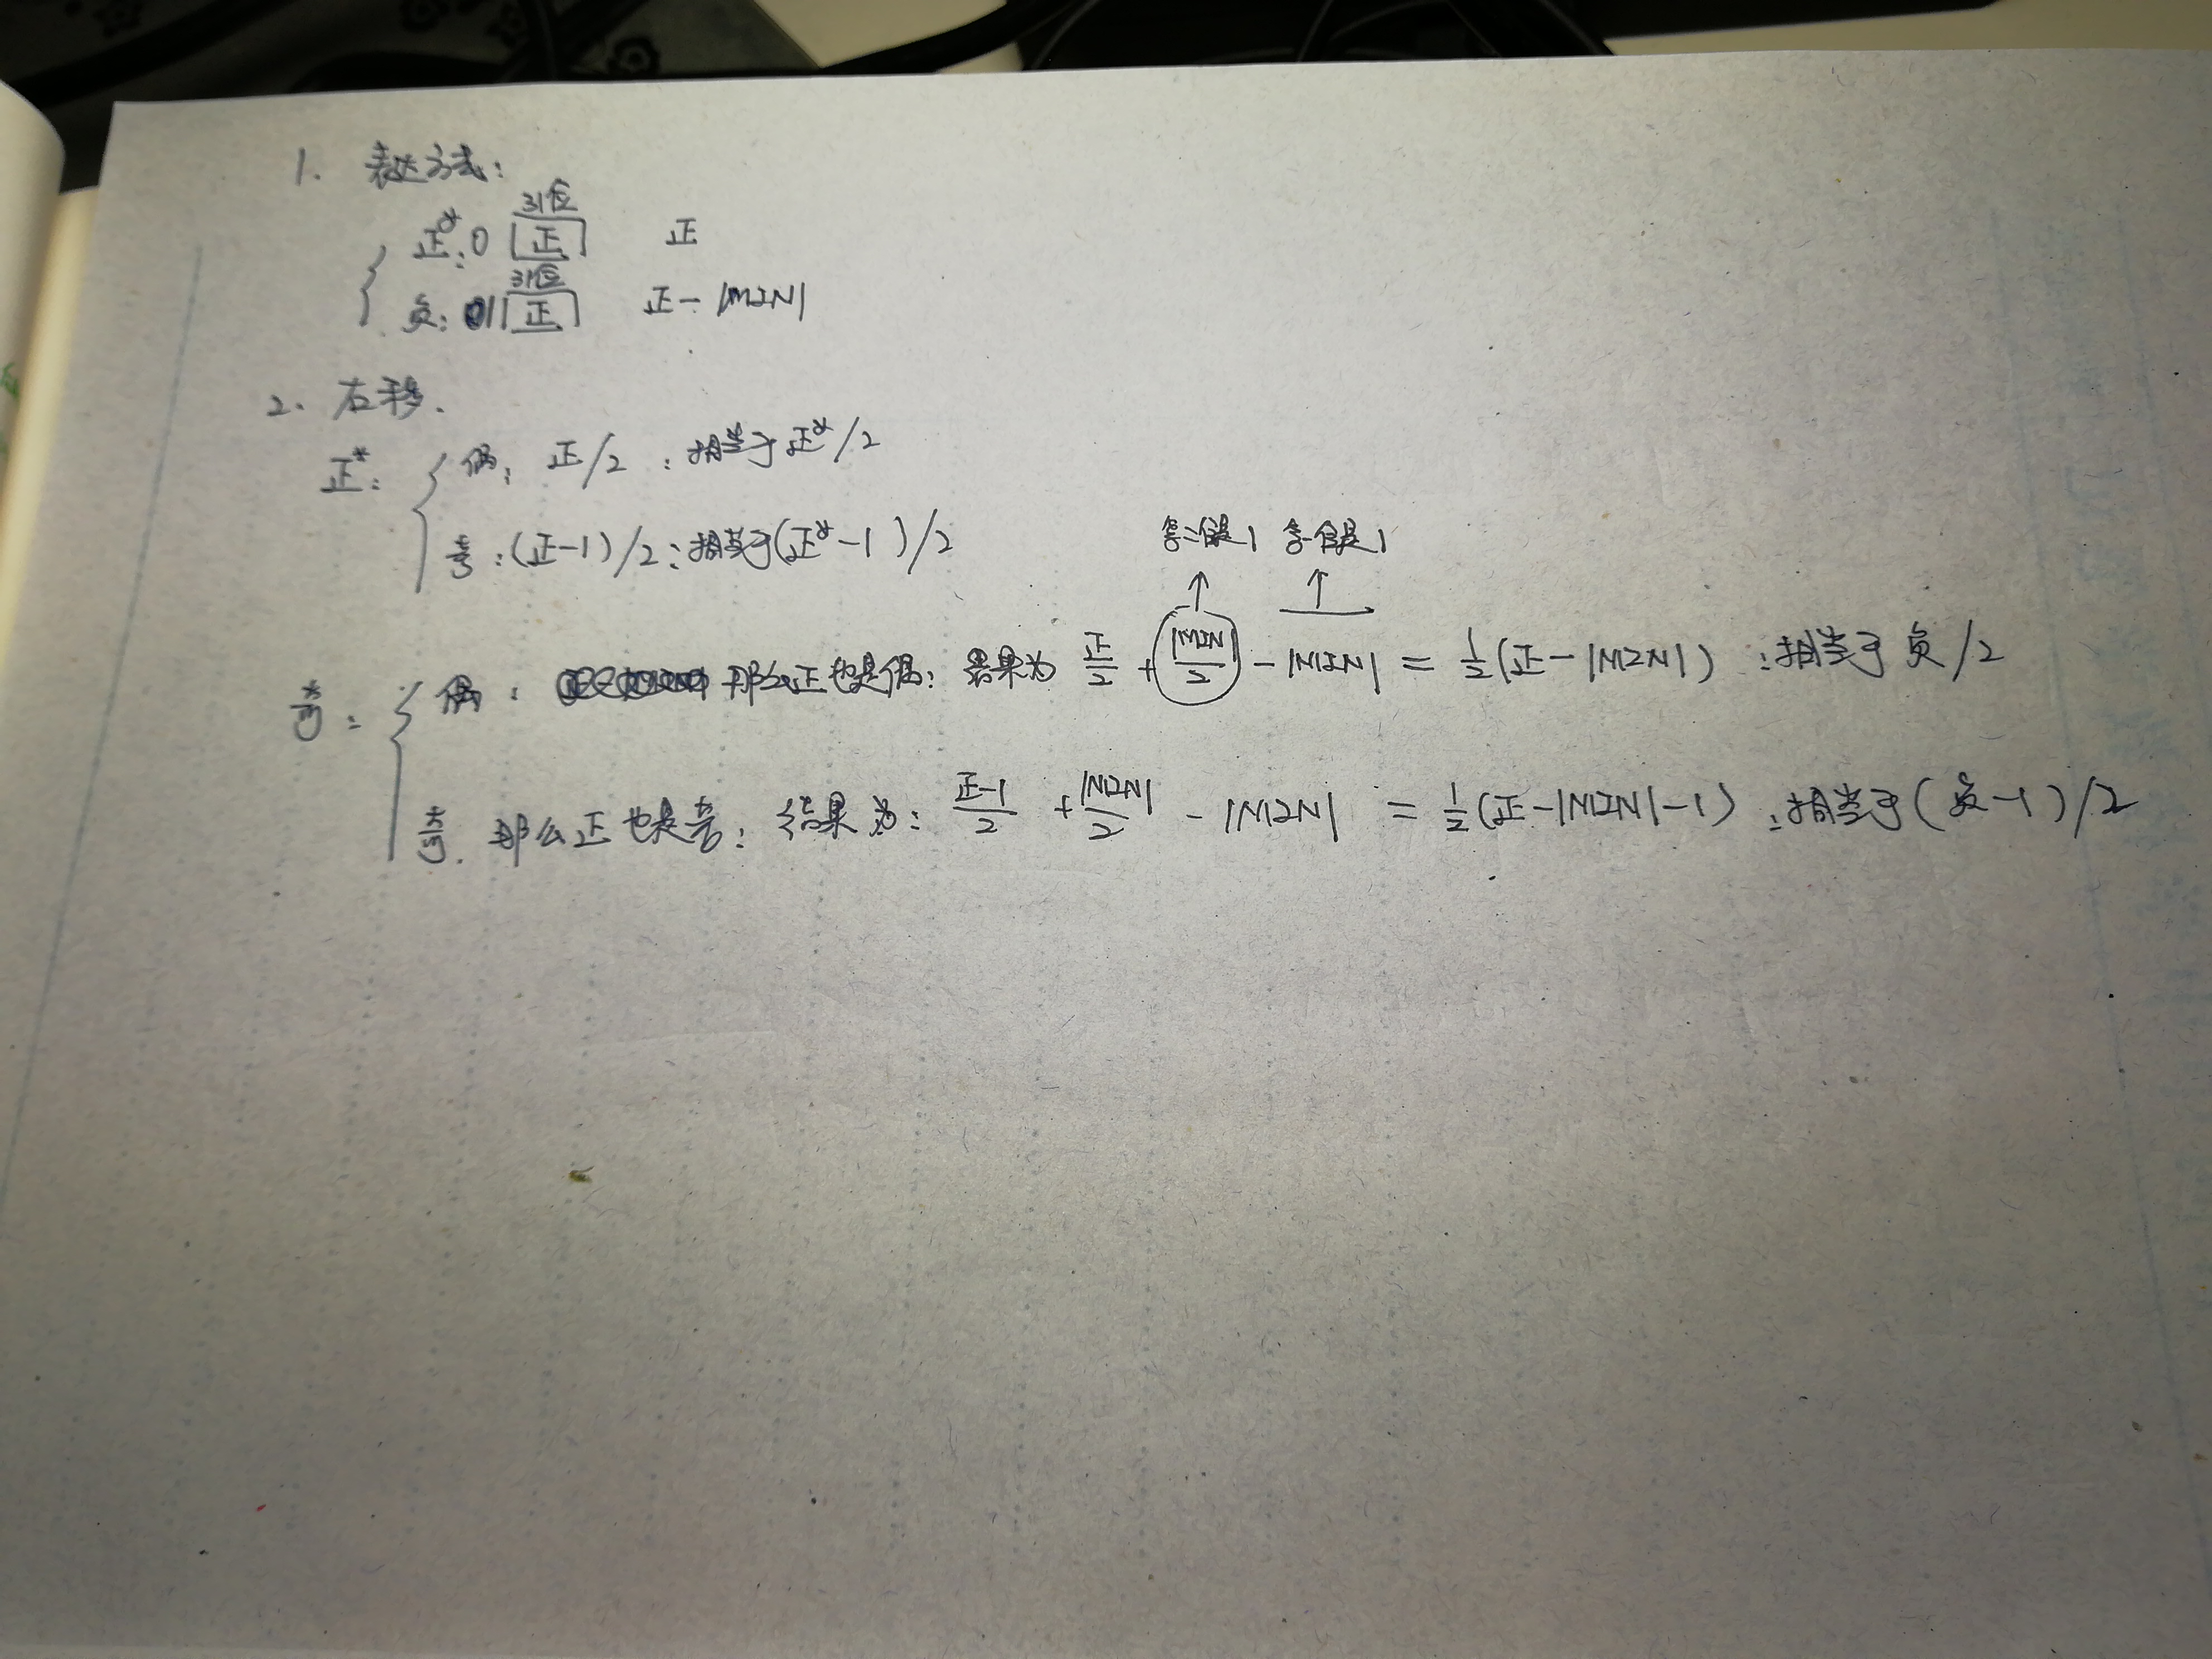 1. 表达方式:
31位
正*: 0 [正] 正
31位
负: 1 [正] 正-|MIN|
2. 右移.
正*: 偶: 正/2 : 相当于正*/2
奇: (正-1)/2: 相当于(正*-1)/2
第二位是1 第一位是1
奇: 偶: 那么正也是偶: 结果为 正/2 + |MIN|/2 - |MIN| = 1/2(正-|MIN|) : 相当于负/2
奇. 那么正也是奇: 结果为: 正-1/2 + |MIN|/2 - |MIN| = 1/2(正-|MIN|-1) : 相当于(负-1)/2